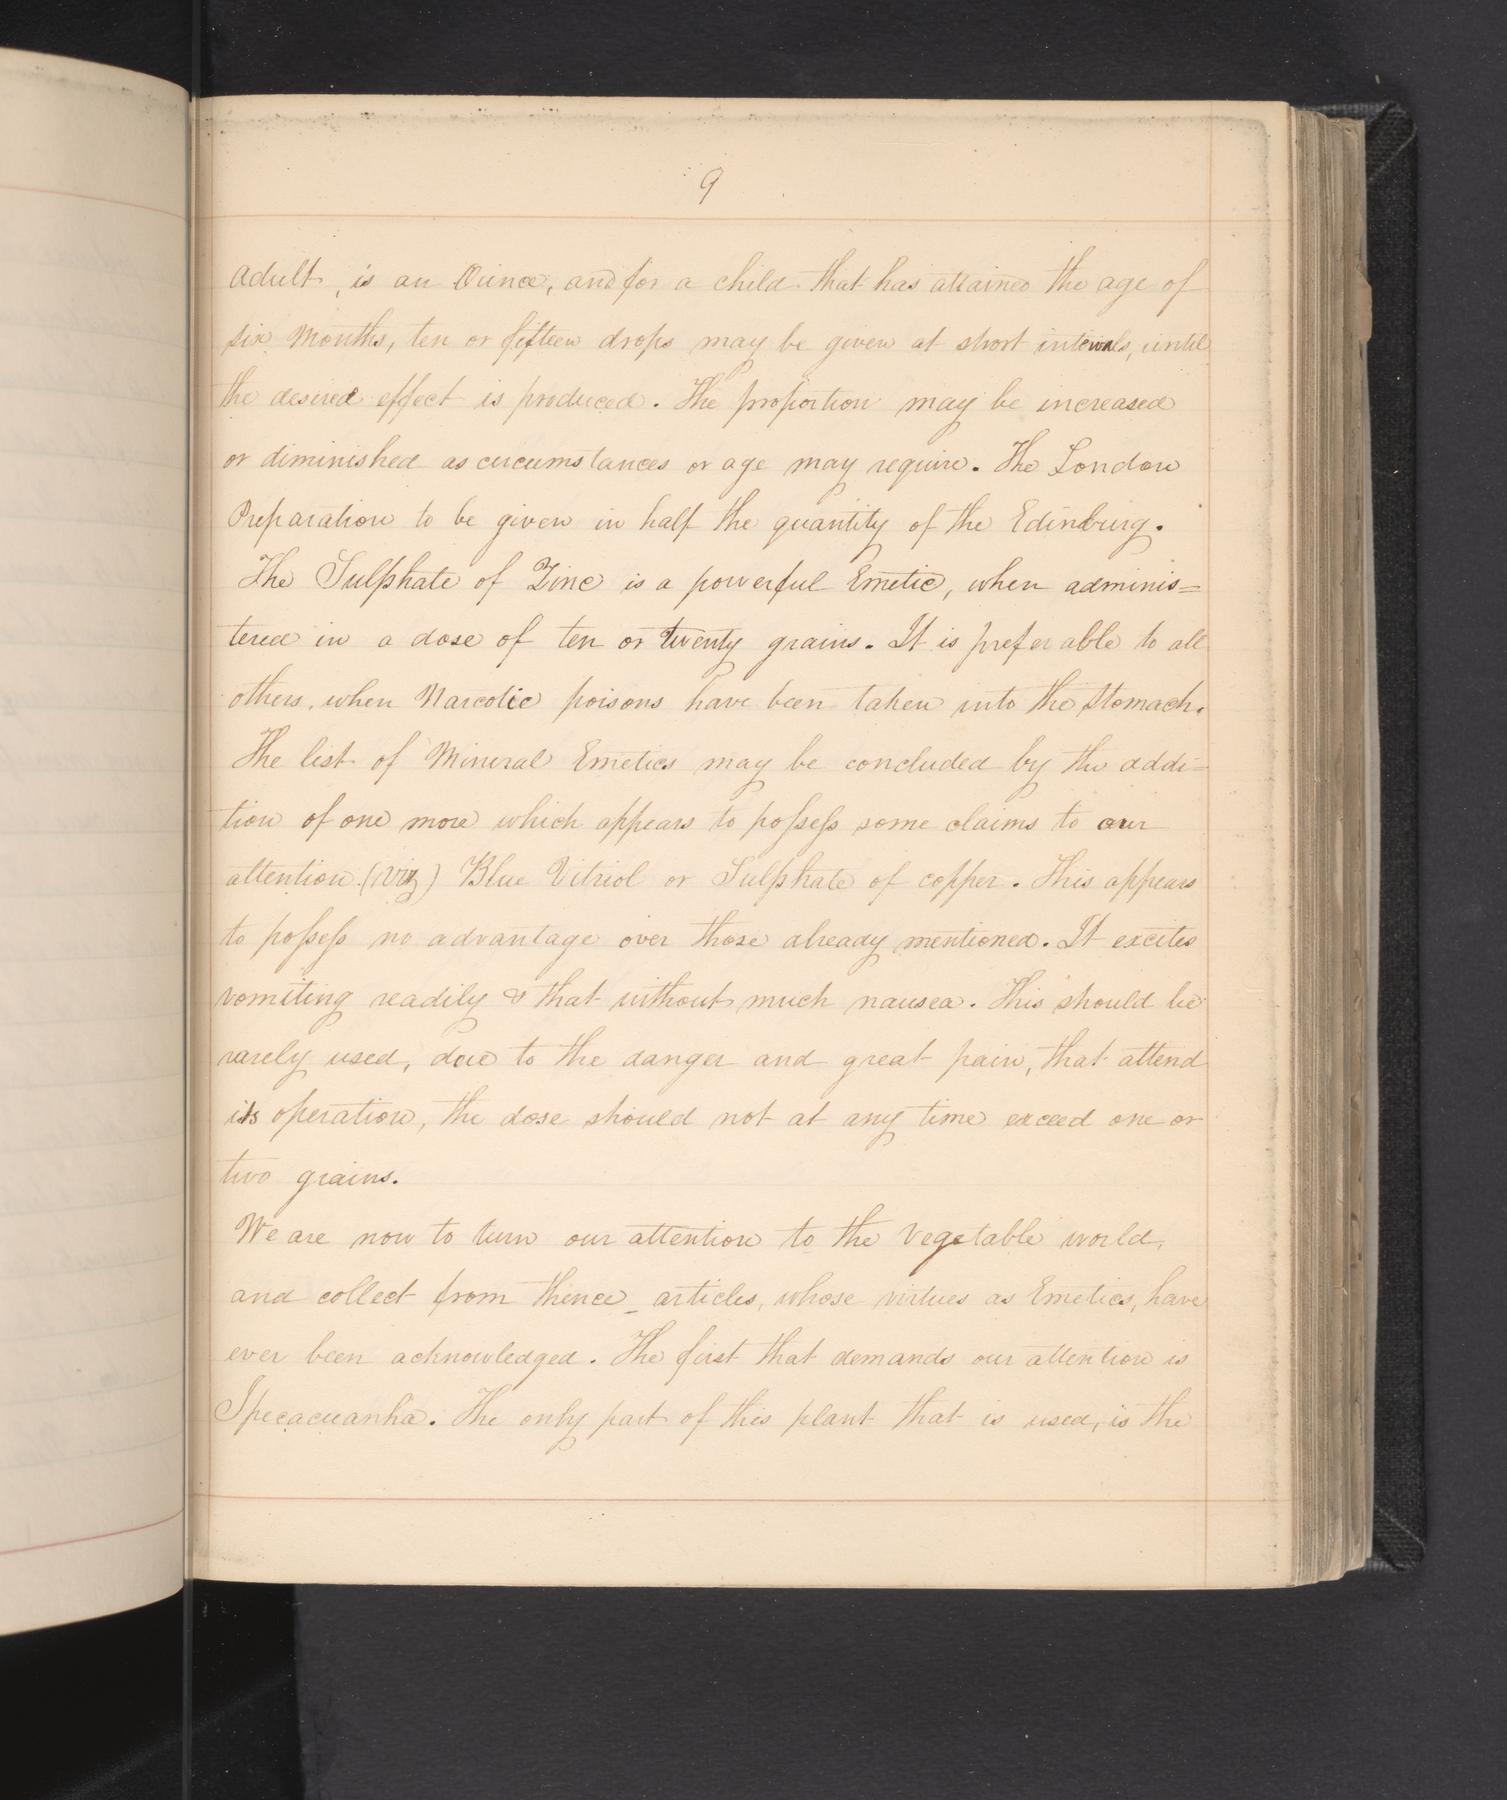 9
Adult, is an Ounce, and for a child that has attained the age of
six Months, ten or fifteen drops may be given at short intervals, until
the desired effect is produced. The proportion may be increased
or diminished as circumstances or age may require. The London
Preparation to be given in half the quantity of the Edinburg.
The Sulphate of Zinc is a powerful Emetic, when adminis=
tered in a dose of ten or twenty grains. It is preferable to all
others, when Narcotic poisons have been taken into the Stomach.
The list of Mineral Emetics may be concluded by the addi=
tion of one more which appears to possess some claims to our
attention (viz) Blue Vitriol or Sulphate of copper. This appears
to possess no advantage over those already mentioned. It excites
vomiting readily & that without much nausea. This should be
rarely used, due to the danger and great pain, that attend
its operation, the dose should not at any time exceed one or
two grains.
We are now to turn our attention to the Vegetable world,
and collect from thence articles, whose virtues as Emetics, have
ever been acknowledged. The first that demands our attention is
Ipecacuanha. The only part of this plant that is used, is the